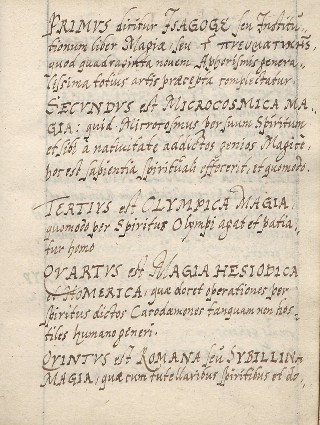 PRIMVS dicitur ISAGOGE seu Institu-
tionum liber Magiæ, seu τ πνευματικῆς,
quod quadraginta novem Aphorismis genera-
lissima totius artis præcepta complectitur.
SECVNDVS est MICROCOSMICA MA-
GIA: quid Microcosmus per suum Spiritum
et sibi a nativitate addictos genios Magicè,
hoc est sapientia spirituali effecerit, et quomodo.
TERTIVS est OLYMPICA MAGIA,
quomodo per Spiritus Olympi agat et patia-
tur homo
QVARTVS est MAGIA HESIODICA
et HOMERICA, quæ docet operationes per
spiritus dictos Cacodæmones tanquam non hos-
tiles humano generi.
QVINTVS est ROMANA seu SYBILLINA
MAGIA, quæ cum tutellaribus spiritibus et do-